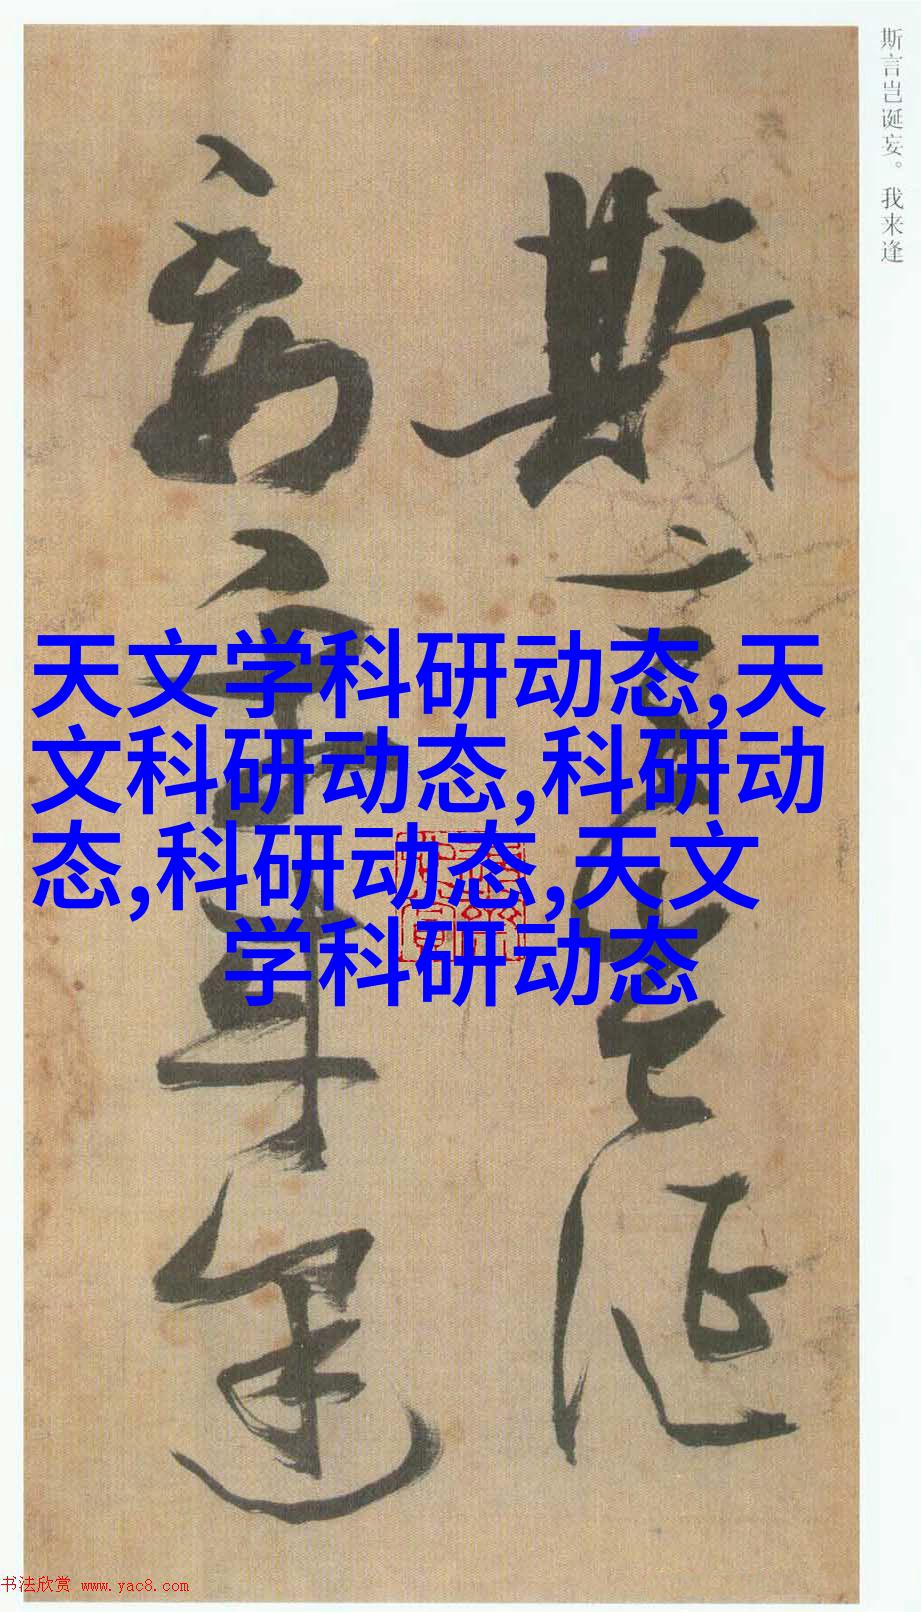 斯言岂诞妄。我来逢
斯言豈誕
妄我来逢
天文学科研动态,天
文科研动态,科研动
态,科研动态,天文
学科研动态
书法欣赏 www.yac8.com